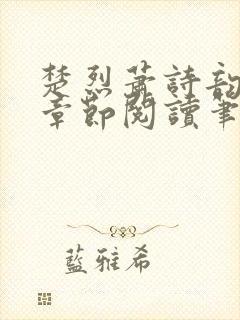 楚烈蕭詩韵
章節閱讀筆
藍雅希